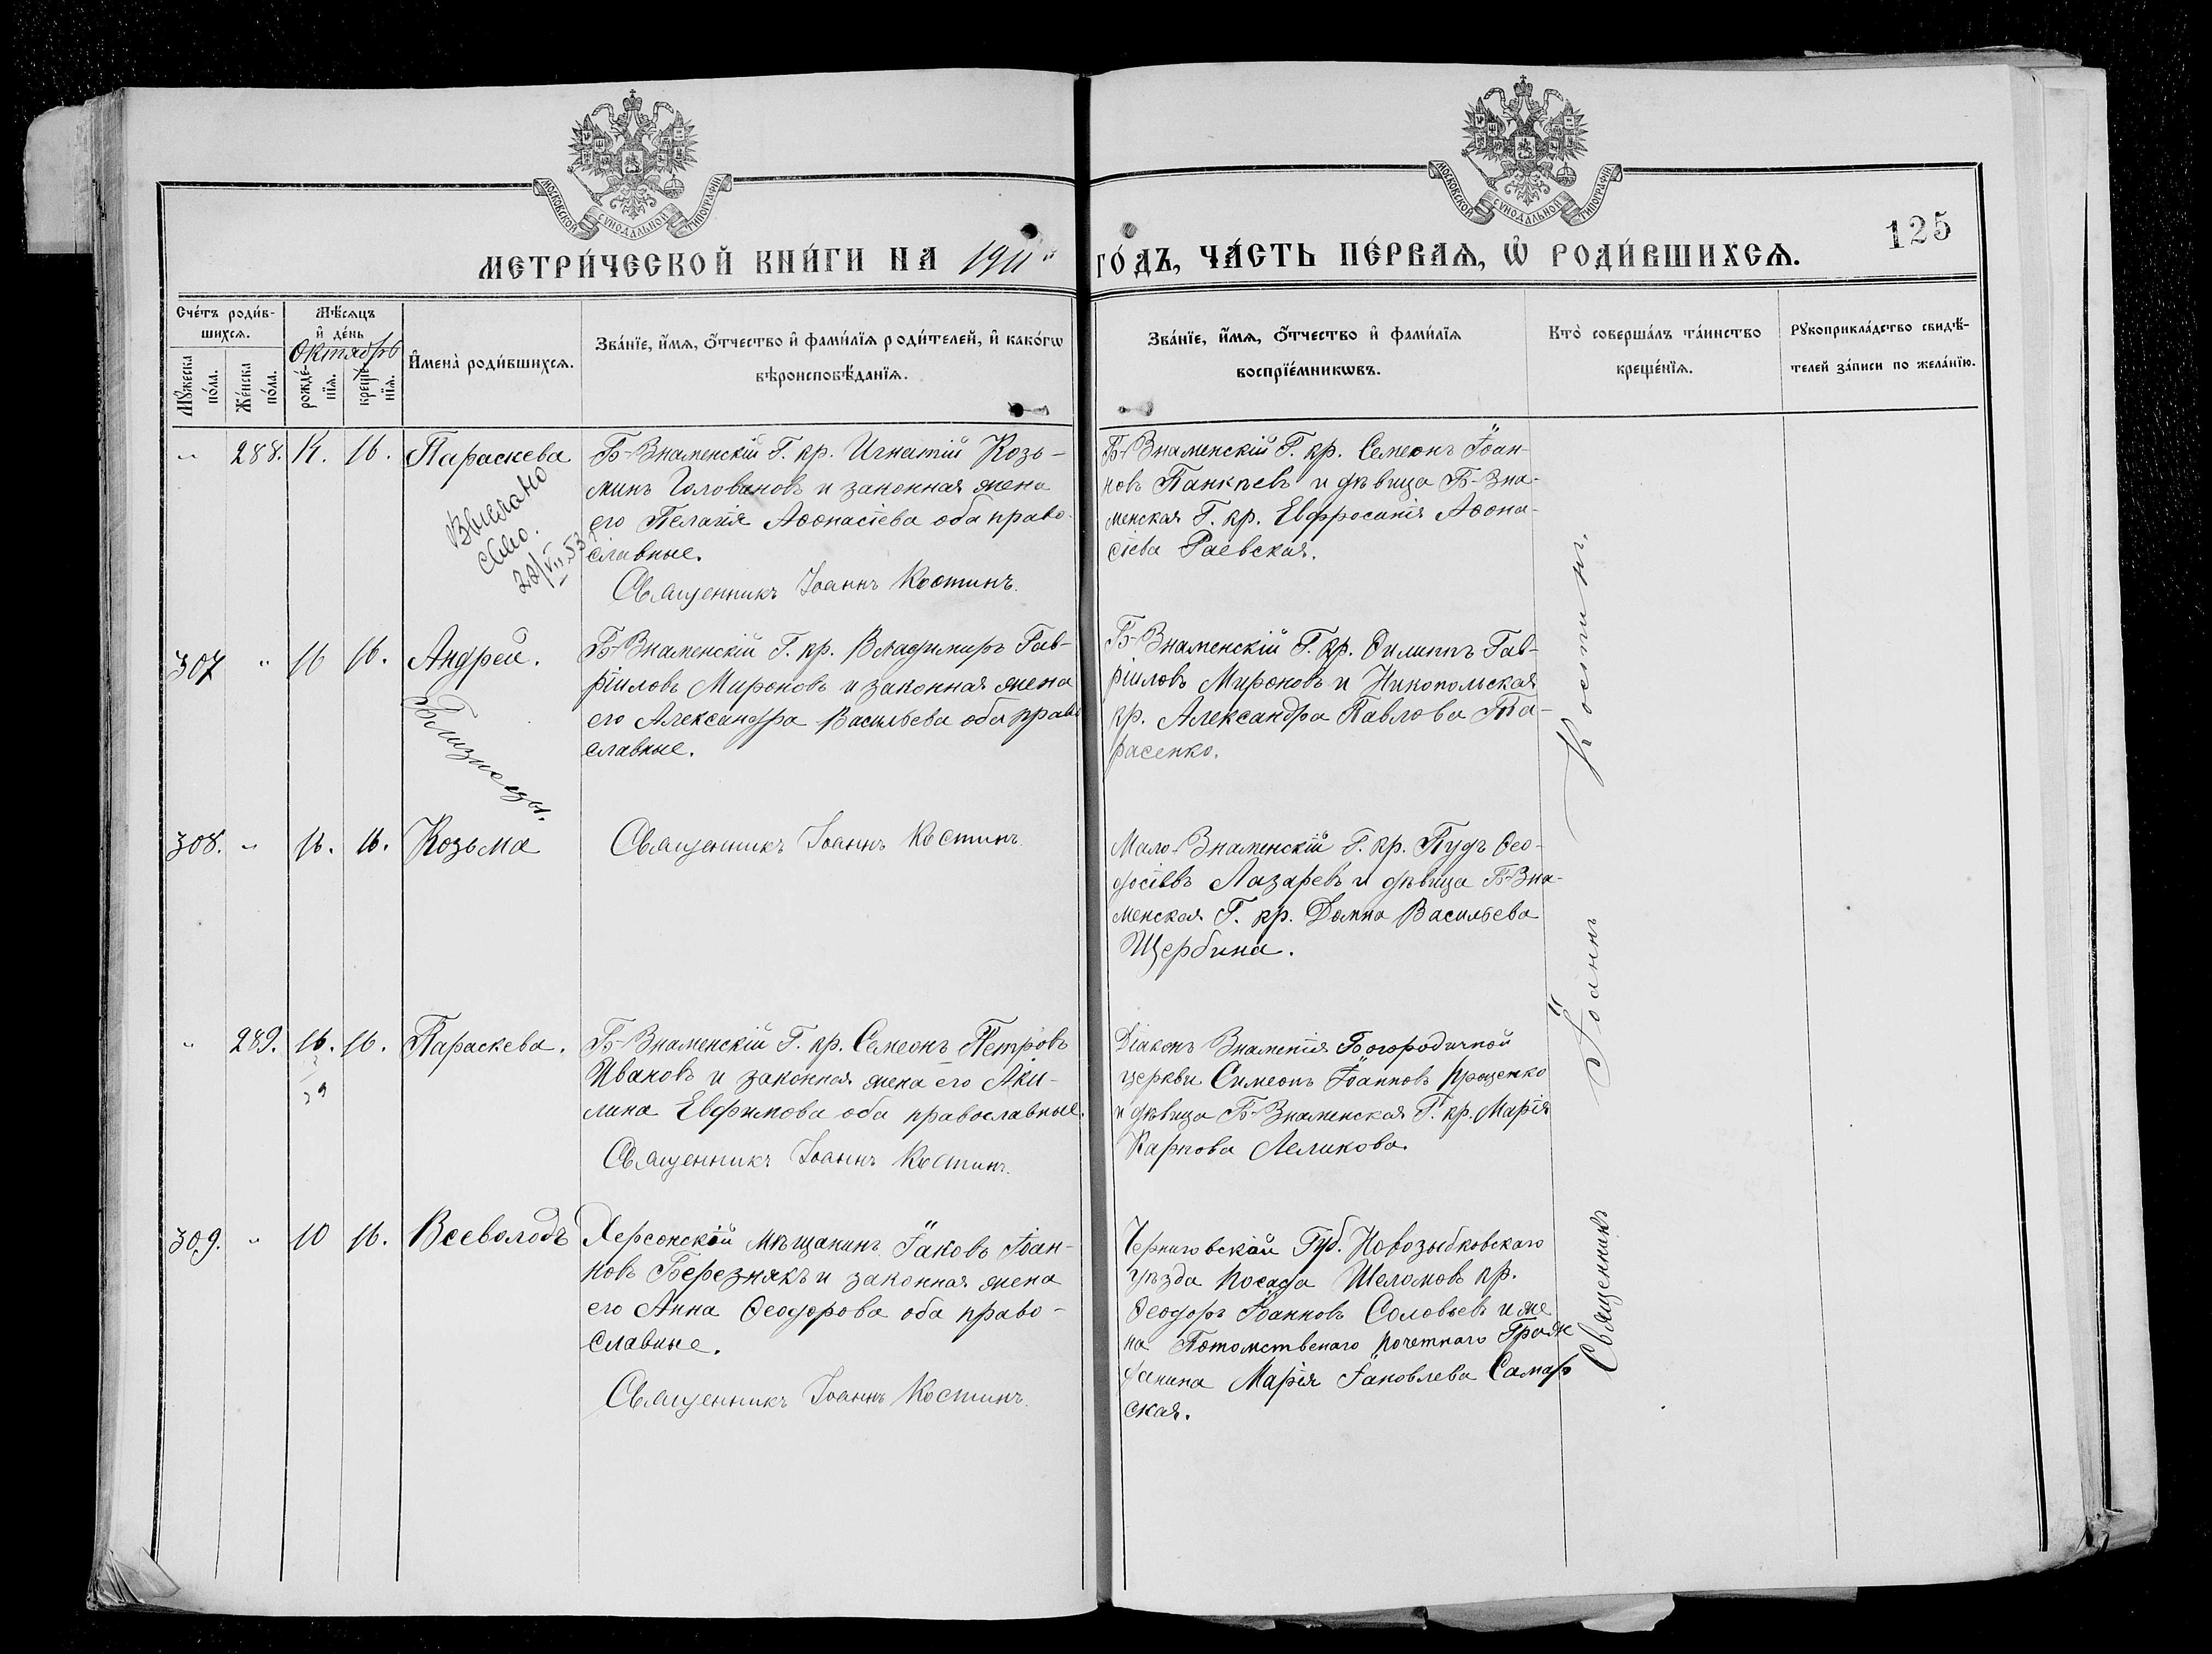 МОСКОВСКОЙ СѴНОДАЛЬНОЙ ТИПОГРАФІИ
МОСКОВСКОЙ СѴНОДАЛЬНОЙ ТИПОГРАФІИ
125
МЕТРИ́ЧЕСКОЙ КНИ́ГИ НА 1911 ГО́ДЪ, ЧА́СТЬ ПЕ́РВАѦ, Ѡ҆ РОДИ́ВШИХСѦ.
Сче́тъ роди́в-
шихсѧ.
Мꙋ́жеска по́ла.
Же́нска по́ла.
Мѣ́сѧцъ
и҆ де́нь
Октябрь
рожде́-нїѧ.
креще́-нїѧ.
И҆мена̀ роди́вшихсѧ.
Зва́нїе, и҆́мѧ, ѻ҆́тчество и҆ фами́лїѧ роди́телей, и҆ како́гѡ
вѣроисповѣ́данїѧ.
Зва́нїе, и҆́мѧ, ѻ҆́тчество и҆ фами́лїѧ
воспрїе́мникѡвъ.
Кто̀ соверша́лъ та́инство
креще́нїѧ.
Рꙋкоприкла́дство свидѣ́-
телей за́писи по жела́нїю.
" 288. 14. 16. Параскева
Выслано
свмо.
22/VII.53
Б-Знаменскій Г. кр. Игнатій Козь-
минъ Головановъ и законная жена
его Пелагія Аѳонасіева оба право-
славные.
Священникъ Іоаннъ Костинъ.
Б-Знаменскій Г. кр. Семеонъ Іоан-
новъ Панкѣевъ и дѣвица Б-Зна-
менская Г. кр. Евфросинія Аѳона-
сіева Раевская.
307 " 16 16. Андрей.
Близнецы.
Б-Знаменскій Г. кр. Владимиръ Гав-
ріиловъ Мироновъ и законная жена
его Александра Васильева оба право
славные.
Б-Знаменскій Г. кр. Филиппъ Гав-
ріиловъ Мироновъ и Никопольская
кр. Александра Павлова Та-
расенко.
308. " 16. 16. Козьма
Священникъ Іоаннъ Костинъ
Мало-Знаменскій Г. кр. Пудъ Ѳео-
досіевъ Лазаревъ и дѣвица Б-Зна-
менская Г. кр. Домна Васильева
Щербина.
" 289. 16. 16. Параскева.
Б-Знаменскій Г. кр. Семеонъ Петровъ
Ивановъ и законная жена его Аки-
лина Евфимова оба православные.
Священникъ Іоаннъ Костинъ.
Діаконъ Знаменія Богородичной
церкви Симеонъ Іоанновъ Проценко
и дѣвица Б-Знаменская Г. кр. Марія
Карпова Леликова.
309. " 10 16. Всеволодъ
Херсонскій мѣщанинъ Іаковъ Іоан-
новъ Березнякъ и законная жена
его Анна Ѳеодорова оба право-
славные.
Священникъ Іоаннъ Костинъ.
Черниговской Губ. Новозыбковскаго
уѣзда посада Шеломовъ кр.
Ѳеодоръ Іоанновъ Соловьевъ и же
на Потомственаго почетнаго Граж
данина Марія Іаковлева Самар
ская.
Священникъ Іоаннъ Костинъ.